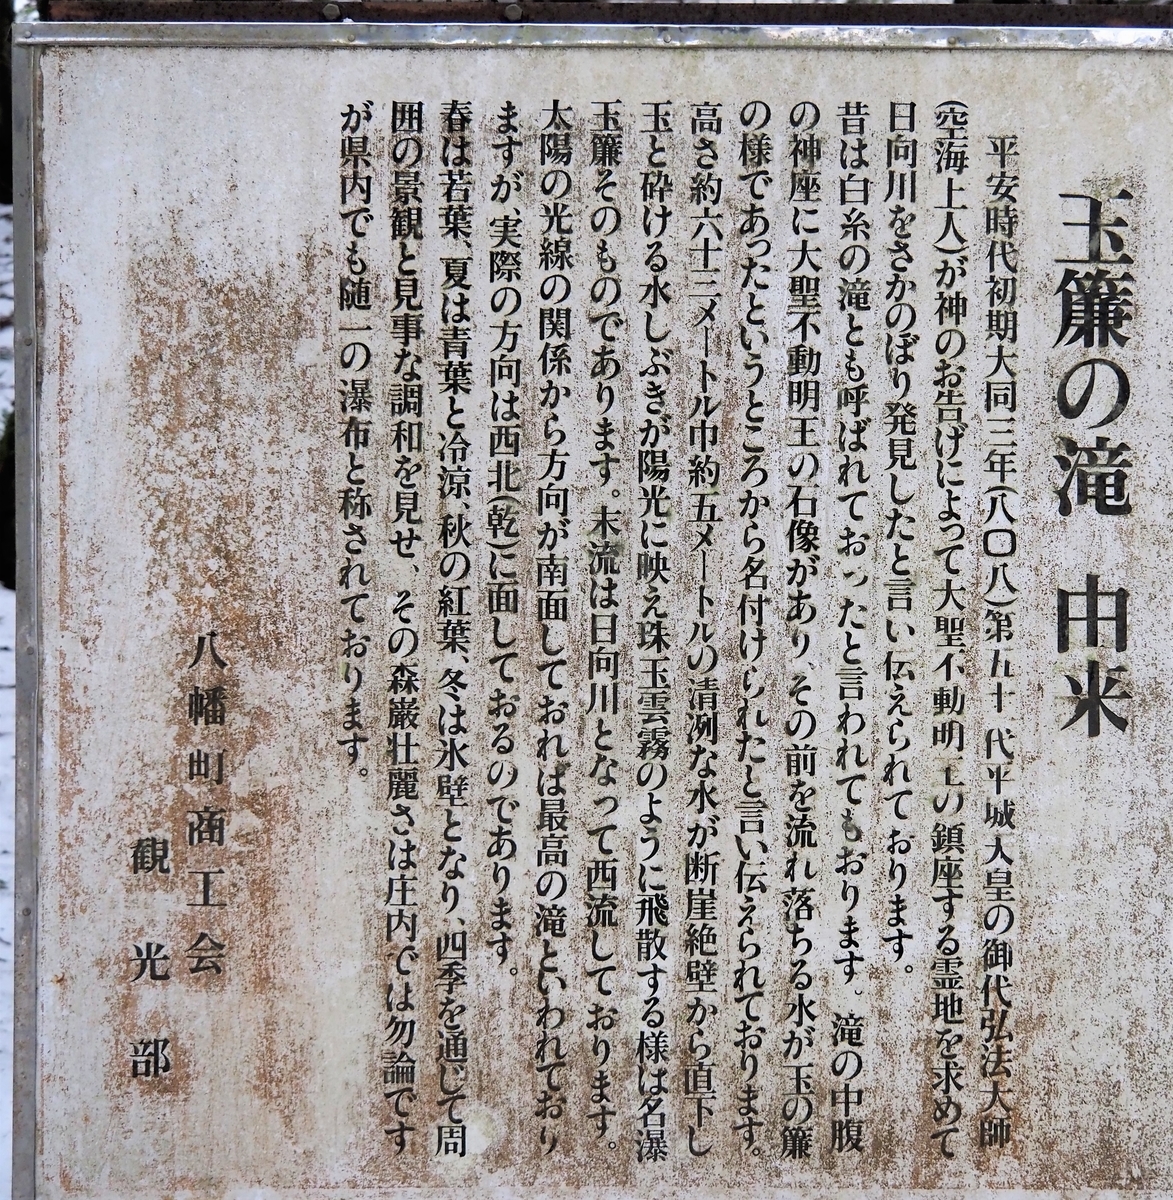 玉簾の滝 由来
平安時代初期大同三年(八〇八)第五十代平城天皇の御代弘法大師
(空海上人)が神のお告げによって大聖不動明王の鎮座する霊地を求めて
日向川をさかのぼり発見したと言い伝えられております。
昔は白糸の滝とも呼ばれておったと言われてもおります。滝の中腹
の神座に大聖不動明王の石像があり、その前を流れ落ちる水が玉の簾
の様であったというところから名付けられたと言い伝えられております。
高さ約六十三メートル巾約五メートルの清冽な水が断崖絶壁から直下し
玉と砕ける水しぶきが陽光に映え珠玉雲霧のように飛散する様は名瀑
玉簾そのものであります。末流は日向川となって西流しております。
太陽の光線の関係から方向が南面しておれば最高の滝といわれており
ますが、実際の方向は西北(乾)に面しておるのであります。
春は若葉、夏は青葉と冷涼、秋の紅葉、冬は氷壁となり、四季を通じて周
囲の景観と見事な調和を見せ、その森厳壮麗さは庄内では勿論です
が県内でも随一の瀑布と称されております。
八幡町商工会
観光部